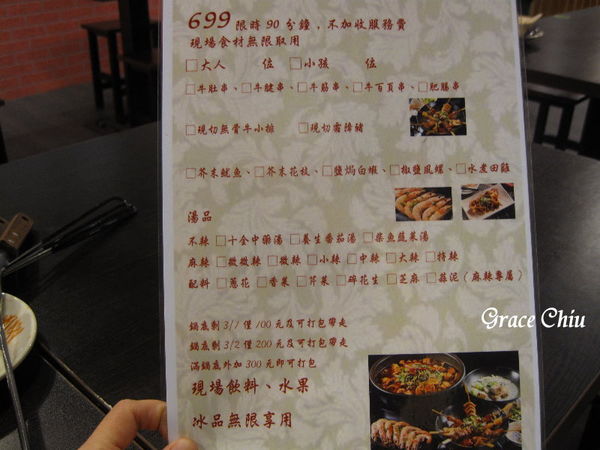 699 限時 90 分鐘，不加收服務費
現場食材無限取用
□大人 位 □小孩 位
□牛肚串、□牛腱串、□牛筋串、□牛百頁串、□肥腸串
□現切無骨牛小排 □現切霜降豬
□芥末魷魚、□芥末花枝、□鹽焗白蝦、□椒鹽風螺、□水煮田雞
湯品
不辣 □十全中藥湯 □養生番茄湯 □柴魚蔬菜湯
麻辣 □微微辣 □微辣 □小辣 □中辣 □大辣 □特辣
配料 □蔥花 □香菜 □芹菜 □碎花生 □芝麻 □蒜泥（麻辣專屬）
鍋底剩 3/1 僅 100 元及可打包帶走
鍋底剩 3/2 僅 200 元及可打包帶走
滿鍋底外加 300 元即可打包
現場飲料、水果
冰品無限享用
Grace Chiu